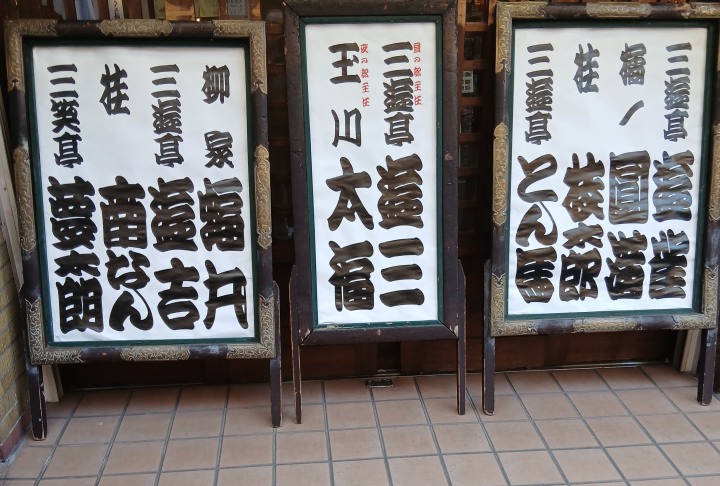 三遊亭
橘ノ
桂
三遊亭 とん馬
昼の部主任
三遊亭 遊三
夜の部主任
玉川 太福
柳家 蝠丸
三遊亭 遊吉
桂 南なん
三笑亭 夢太朗